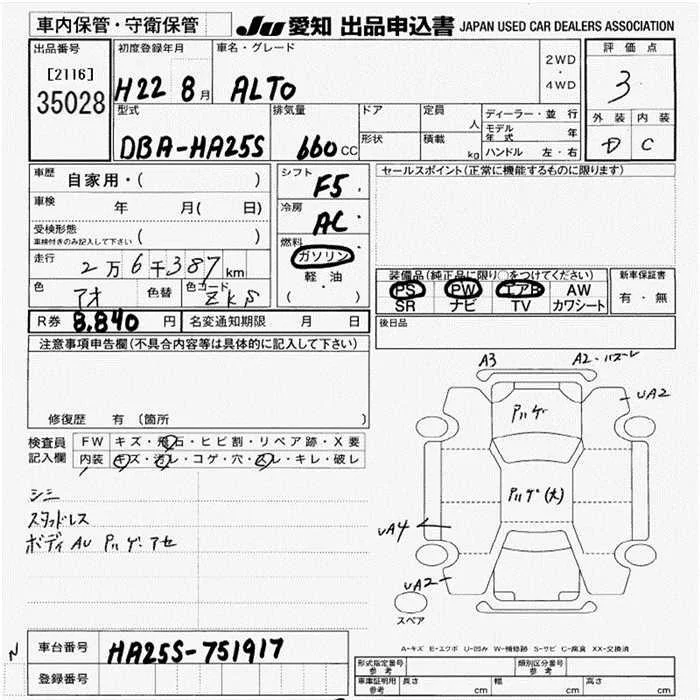 車内保管・守衛保管
JU 愛知 出品申込書 JAPAN USED CAR DEALERS ASSOCIATION
出品番号
[2116]
35028
初度登録年月
H22 8月
車名・グレード
ALTO
2WD
・
4WD
評価点
3
外装 内装
D C
型式
DBA-HA25S
排気量
660 CC
ドア
形状
定員
人
積載
kg
ディーラー・並行
モデル年式 年
ハンドル 左・右
車歴 自家用・( )
車検 年 月( 日)
受検形態
車検付きのみ記入して下さい ( )
走行 2万6千387km
色 アオ 色替 色コード ZKS
シフト
F5
冷房
AC
燃料
ガソリン
軽油
( ・ )
セールスポイント(正常に機能するものに限ります)
装備品(純正品に限り〇をつけてください)
PS PW エアB AW
SR ナビ TV カワシート
新車保証書
有・無
R券 8.840 円 名変通知期限 月 日
後日品
注意事項申告欄(不具合内容等は具体的に記入して下さい)
修復歴 有 〔箇所 〕
検査員記入欄
FW キズ・飛石・ヒビ割・リペア跡・X要
内装 キズ・汚レ・コゲ・穴・スレ・キレ・破レ
シミ
スタッドレス
ボディ AU アルゲ アセ
A3
A2・バズーレ
UA2
アルゲ
アルゲ(大)
UA4
UA2
スペア
A-キズ E-エクボ U-凹み W-補修跡 S-サビ C-腐食 XX-交換済
N
車台番号 HA25S-751917
登録番号
形式指定番号 参考
類別区分番号 参考
車庫証明用 参考 長さ cm 幅 cm 高さ cm